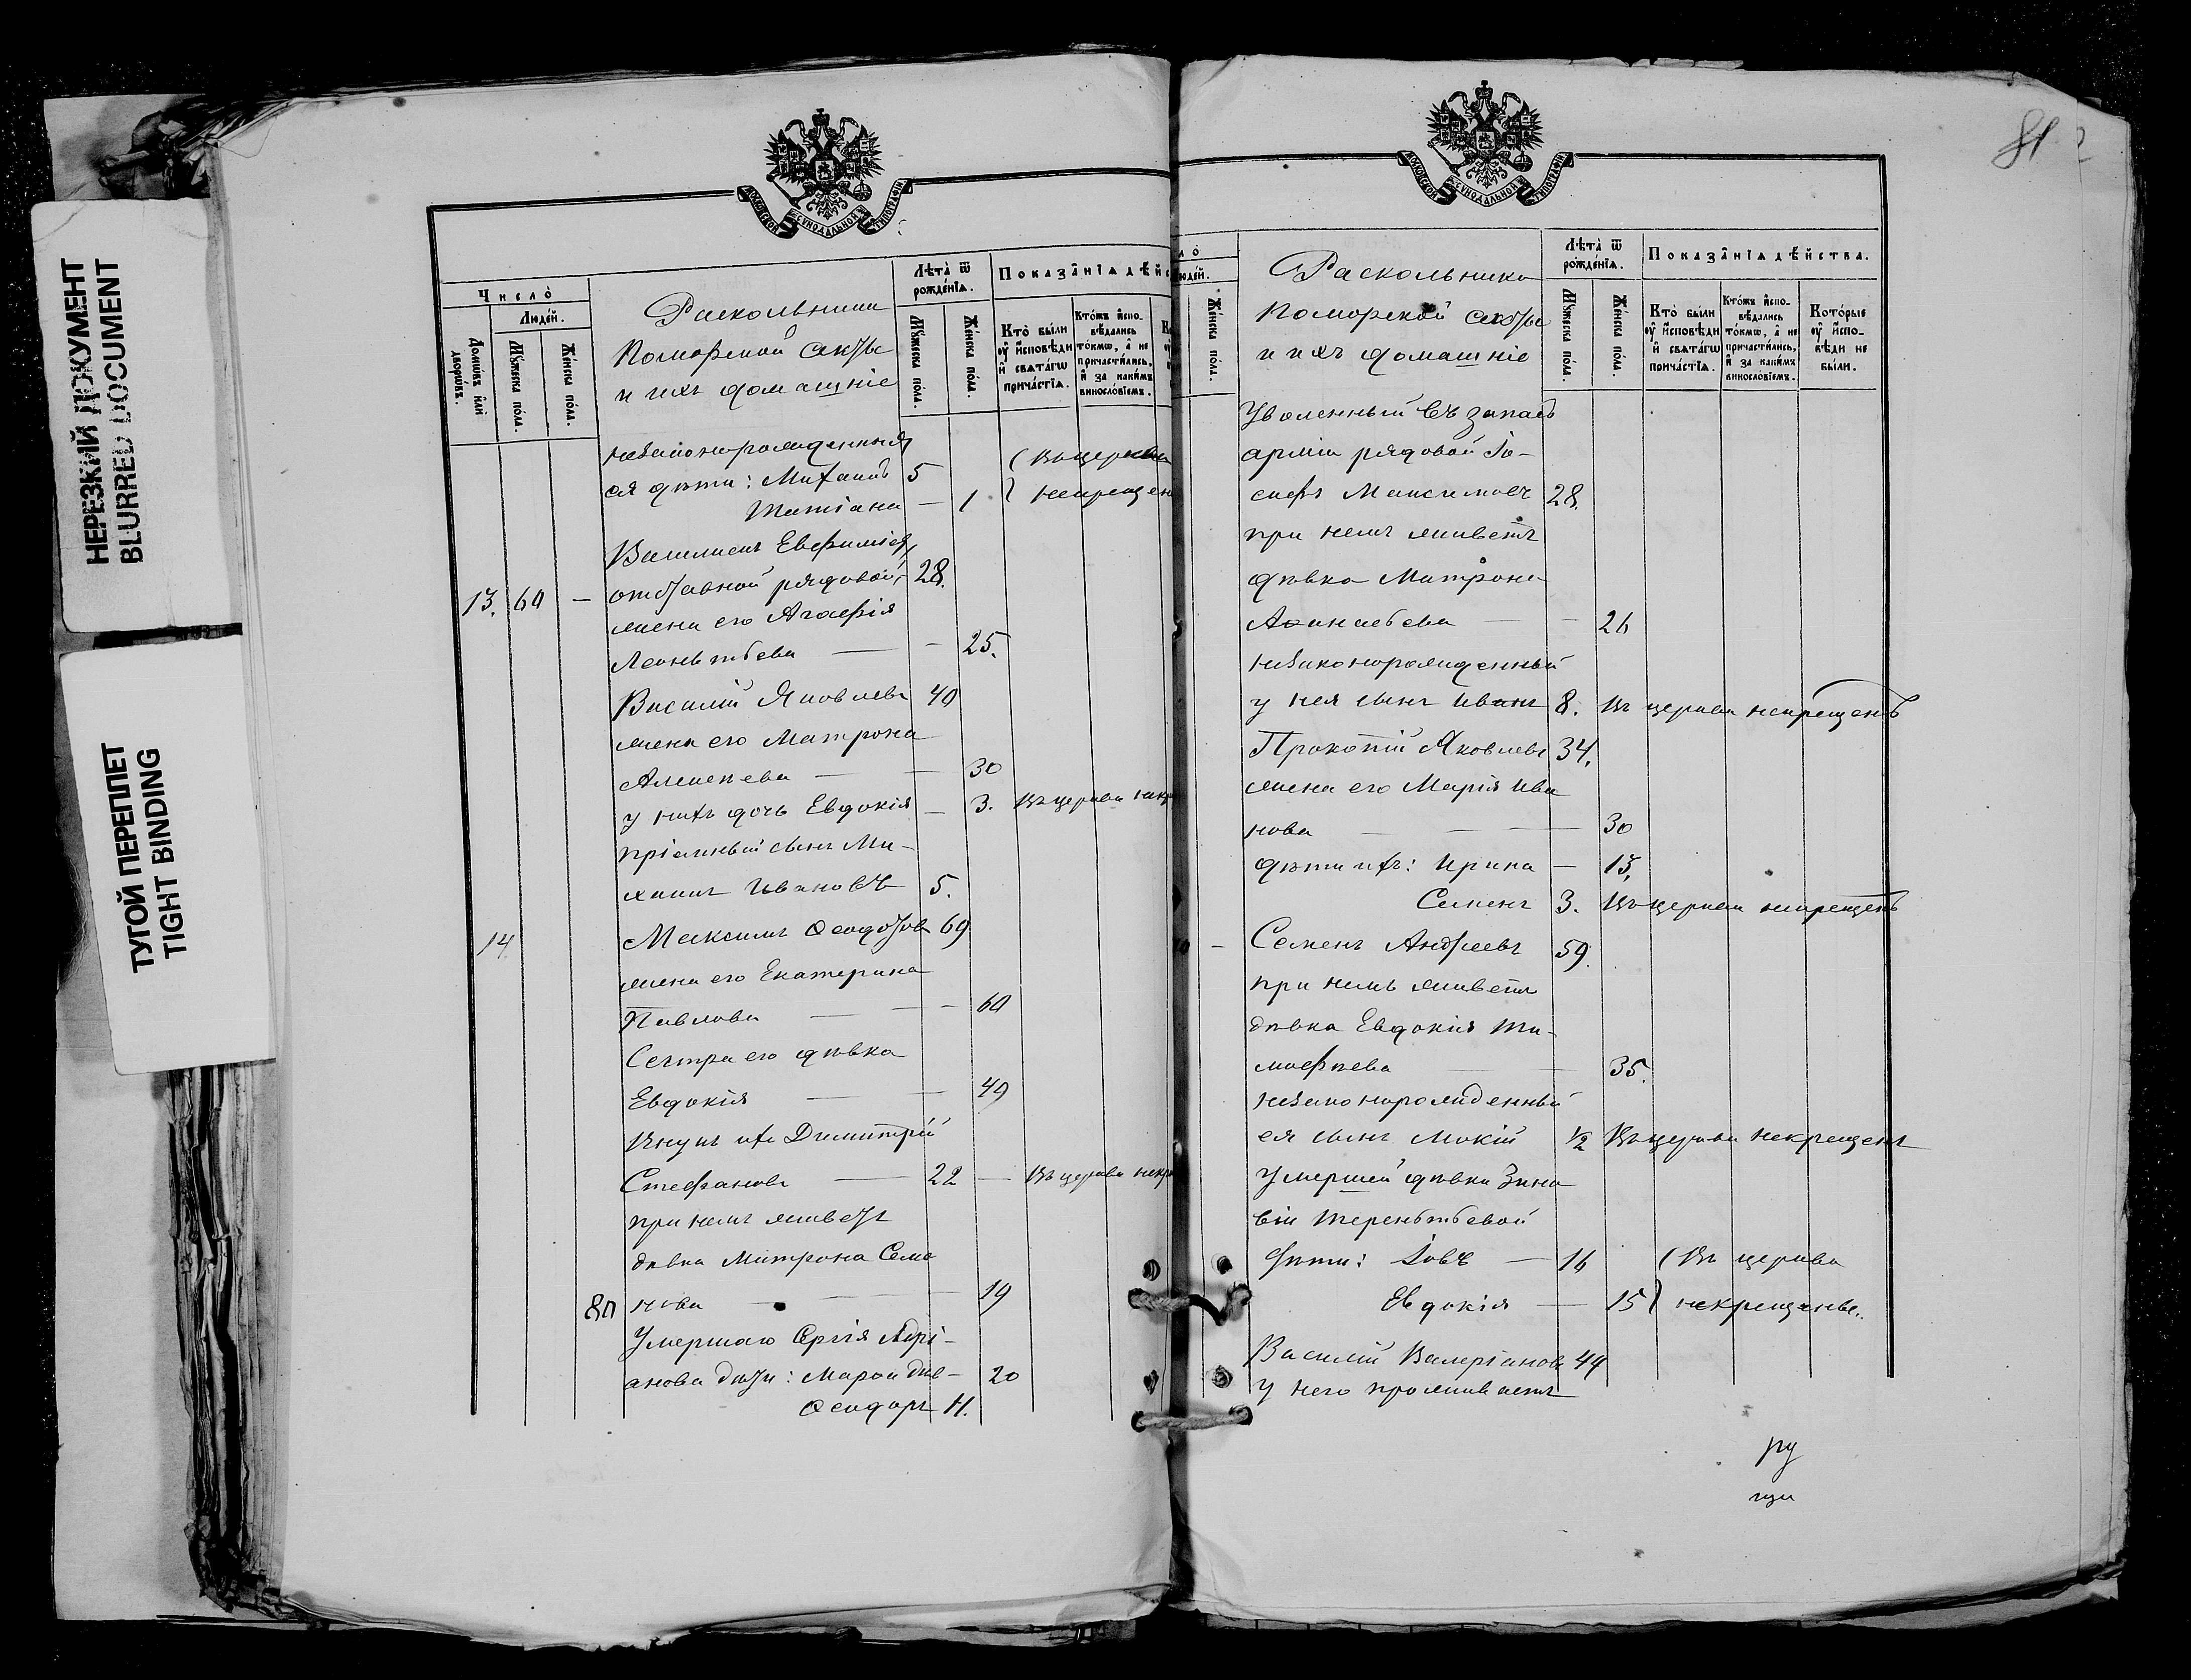 НЕРЕЗКИЙ ДОКУМЕНТ
BLURRED DOCUMENT
ТУГОЙ ПЕРЕПЛЕТ
TIGHT BINDING
МОСКОВСКОЙ СѴНОДАЛЬНОЙ ТИПОГРАФІИ
Число̀
Людéй.
Домѡвъ и҆лѝ дворѡвъ.
Мꙋ́жеска по́ла.
Же́нска по́ла.
Раскольники
Поморской секты
и ихъ домашніе
Лѣта̀ ѿ рождéнїѧ.
Мꙋ́жеска по́ла.
Же́нска по́ла.
Показа̑нїѧ дѣ́йс
Кто̀ бы́ли ᲂу҆ и҆сповѣди и҆ свѧта́гѡ причáстїѧ.
Кто́жъ и҆спо-
вѣ́дались
то́кмѡ, а҆ не
причасти́лись,
и҆ за каки́мъ
винословїемъ.
незаконорожденныя
ея дѣти: Михаилъ 5 (Въ церкви
Татіана — 1 } некрещен
Василискъ Евфиміев
13. 60 — отставной рядовой, 28.
жена его Агафія
Леонтьева — - 25.
Василій Яковлевъ 40
жена его Матрона
Алексѣева — — 30
у нихъ дочь Евдокія — 3. Въ церкви некр
пріемный сынъ Ми-
хаилъ Ивановъ 5.
14 Максимъ Ѳеодотов 69
жена его Екатерина
Павлова — - - 60
Сестра его дѣвка
Евдокія — — 49
Внукъ ихъ Димитрій
Стефановъ — 22 — Въ церкви некр
при немъ живетъ
дѣвка Матрона Семе
нова — — — 19
Умершаго Сергія Адрі-
анова дѣти: Марѳа дѣв- 20
Ѳеодоръ 11.
81
МОСКОВСКОЙ СѴНОДАЛЬНОЙ ТИПОГРАФІИ
ло̀
людéй.
Же́нска по́ла.
Раскольники
Поморской секты
и ихъ домашніе
Лѣта̀ ѿ рождéнїѧ.
Мꙋ́жеска по́ла.
Же́нска по́ла.
Показа̑нїѧ дѣ́йства.
Кто̀ бы́ли ᲂу҆ и҆сповѣди и҆ свѧта́гѡ причáстїѧ.
Кто́жъ и҆спо-
вѣ́дались
то́кмѡ, а҆ не
причасти́лись,
и҆ за каки́мъ
винословїемъ.
Кото́рые ᲂу҆ и҆спо-
вѣди не бы́ли.
Уволенный въ запасъ
арміи рядовой Іо-
сифъ Максимовъ 28.
при немъ живетъ
дѣвка Матрона
Аѳанасьева — - 26
незаконорожденный
у нея сынъ Иванъ 8. Въ церкви некрещенъ
Прокопій Яковлевъ 34.
жена его Марія Ива
нова — — — 30
дѣти ихъ: Ирина — 13.
Семенъ 3. Въ церкви некрещенъ
- Семенъ Андреевъ 59.
при немъ живетъ
дѣвка Евдокія Ти-
мофѣева — — 35.
незаконорожденный
ея сынъ Мокій ½ Въ церкви некрещенъ
Умершей дѣвки Зино
віи Терентьевой
дѣти: Іовъ — 16 (Въ церкви
Евдокія — 15 } некрещены.
Василій Валеріанов 44
у него проживаетъ